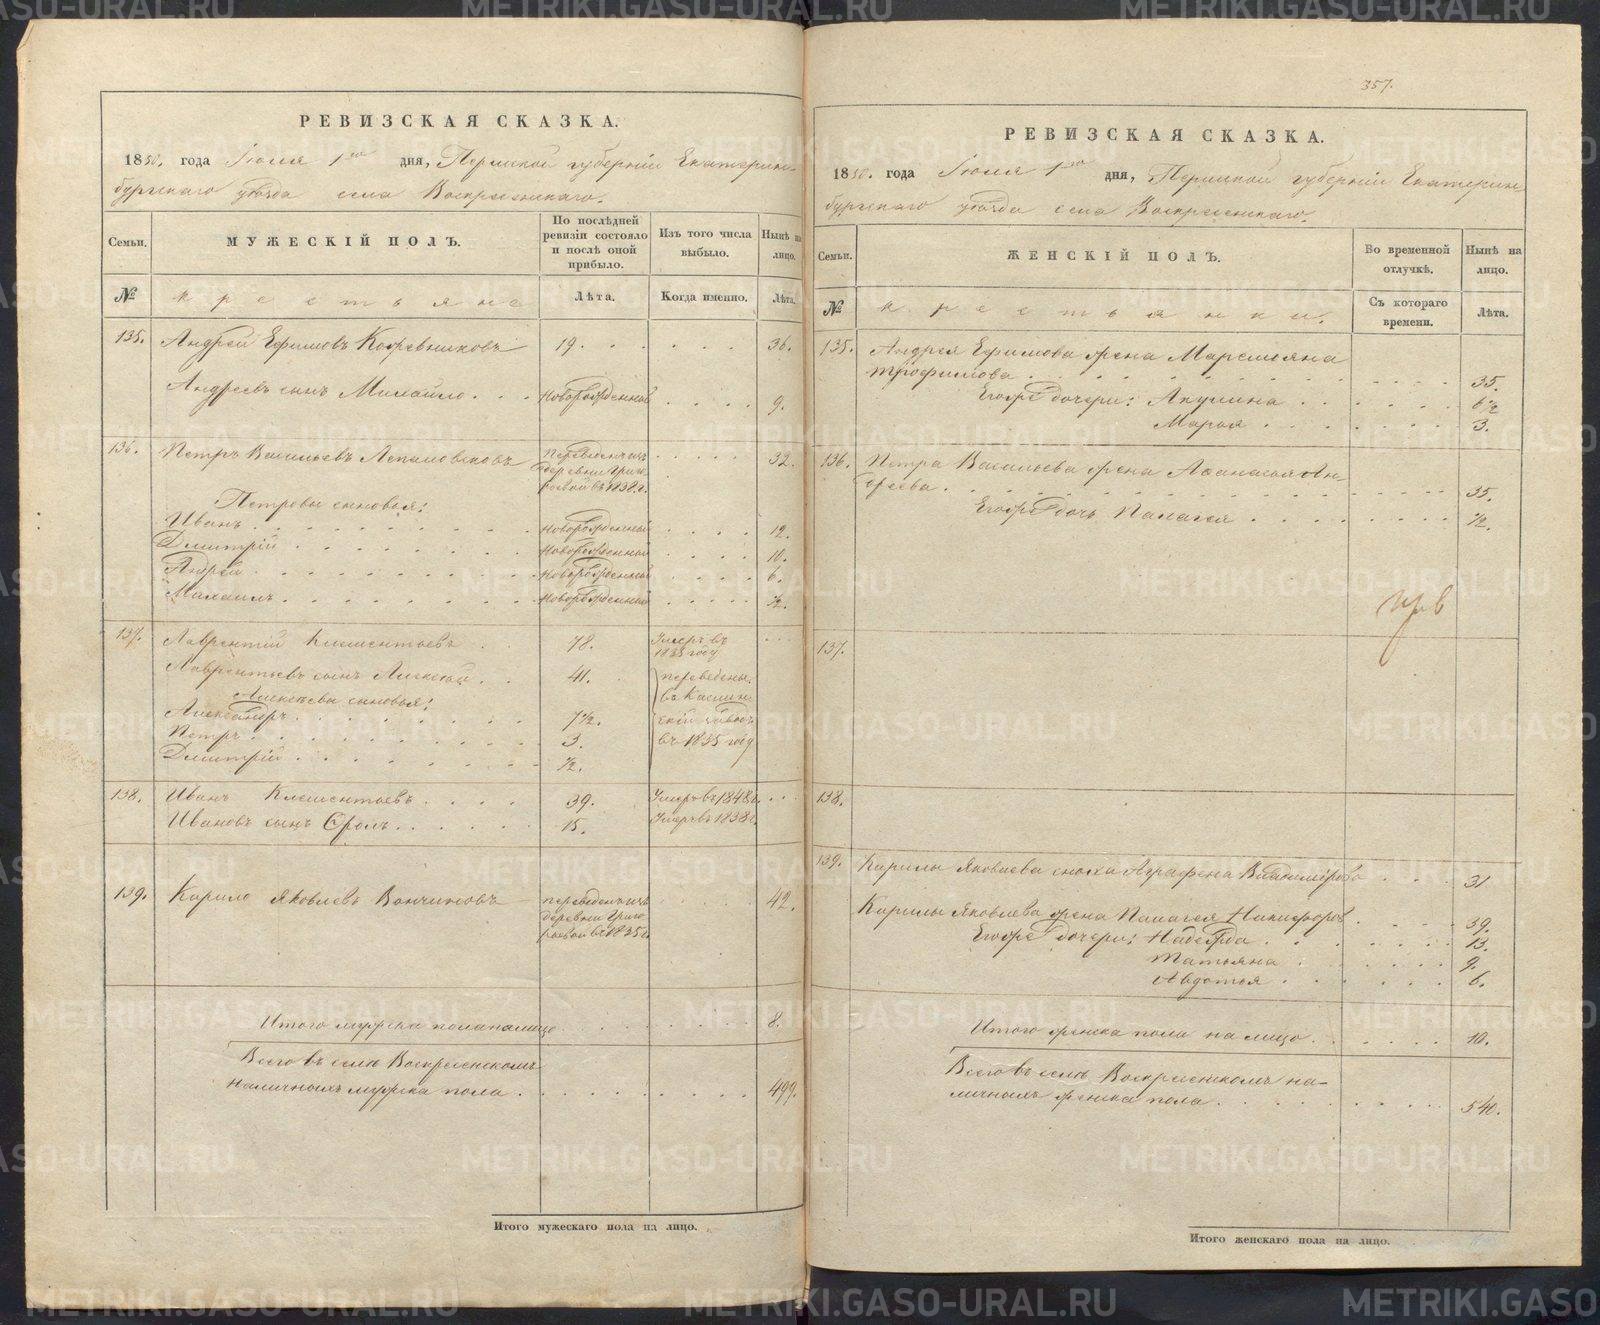 РЕВИЗСКАЯ СКАЗКА.
1850. года Іюля 1го дня, Пермской губерніи Екатерин-
бургскаго уѣзда села Воскресенскаго.
Семьи.
МУЖЕСКІЙ ПОЛЪ.
По послѣдней ревизіи состояло и послѣ оной прибыло.
Изъ того числа выбыло.
Нынѣ на лицо.
№
крестьяне
Лѣта.
Когда именно.
Лѣта.
135. Андрей Ефимовъ 19. 36.
Андреевъ сынъ Михайло новорожденный 9.
136. Петръ Васильевъ переведенъ изъ деревни въ 1838.г. 32.
Петровы сыновья:
Иванъ новорожденный 12.
Дмитрій новорожденный 10.
Андрей новорожденный 6.
Михаилъ новорожденный ½.
137. Лаврентій Клементьевъ 78. Умеръ въ 1835 году
Лаврентьевъ сынъ Алексѣй 41. переведены
Алексѣевы сыновья: въ Каслин-
Александръ 7½. скій заводъ
Петръ 3. въ 1835 году
Дмитрій ½.
138. Иванъ Клементьевъ 39. Умеръ въ 1848г.
Ивановъ сынъ Фролъ 15. Умеръ въ 1838г.
139. Кирило Яковлевъ переведенъ изъ деревни въ 1835г. 42.
Итого мужска пола на лицо 8.
Всего въ селѣ Воскресенскомъ
наличныхъ мужска пола 499.
Итого мужескаго пола на лицо.
357.
РЕВИЗСКАЯ СКАЗКА.
1850. года Іюля 1го дня, Пермской губерніи Екатерин
бургскаго уѣзда села Воскресенскаго.
Семьи.
ЖЕНСКІЙ ПОЛЪ.
Во временной отлучкѣ.
Нынѣ на лицо.
№
крестьянки.
Съ котораго времени.
Лѣта.
135. Андрея Ефимова жена Маремьяна
Трофимова 35.
Егожъ дочери: Акулина 6½
Марья 3.
136. Петра Васильева жена Афанасья Ан-
дреева 35.
Егожъ дочь Палагея ½.
137.
138.
139. Кирилы Яковлева сноха Аграфена Владимерова 31
Кирилы Яковлева жена Палагея Никифорова 39.
Егожъ дочери: Надежда 13.
Татьяна 9.
Авдотья 6.
Итого женска пола на лицо 10.
Всего въ селѣ Воскресенскомъ на-
личныхъ женска пола 540.
Итого женскаго пола на лицо.
METRIKI.GASO-URAL.RU